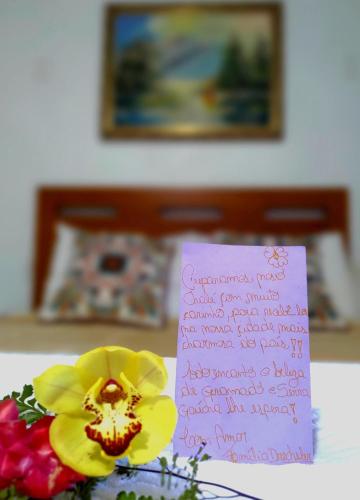 Preparamos, nosso
Chalé com muito
carinho, para recebê-los
na nossa cidade mais
charmosa do país,!!
O encanto e beleza
de gramado e Serra
gaúcha lhe espera!
Com, Amor
Família